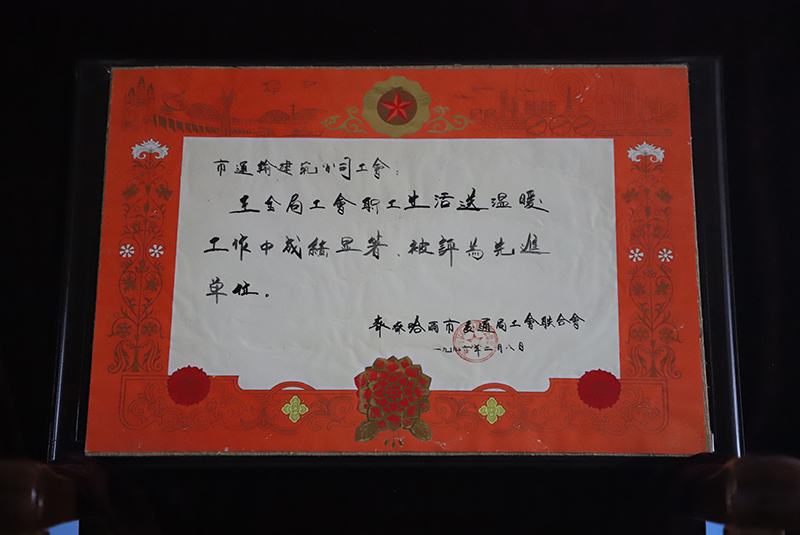 市運輸建筑公司工會：
在全局工會职工生活送温暖
工作中成績显著、被評為先進
单位。
齐齐哈爾市交通局工會联合會
一九九六年二月八日